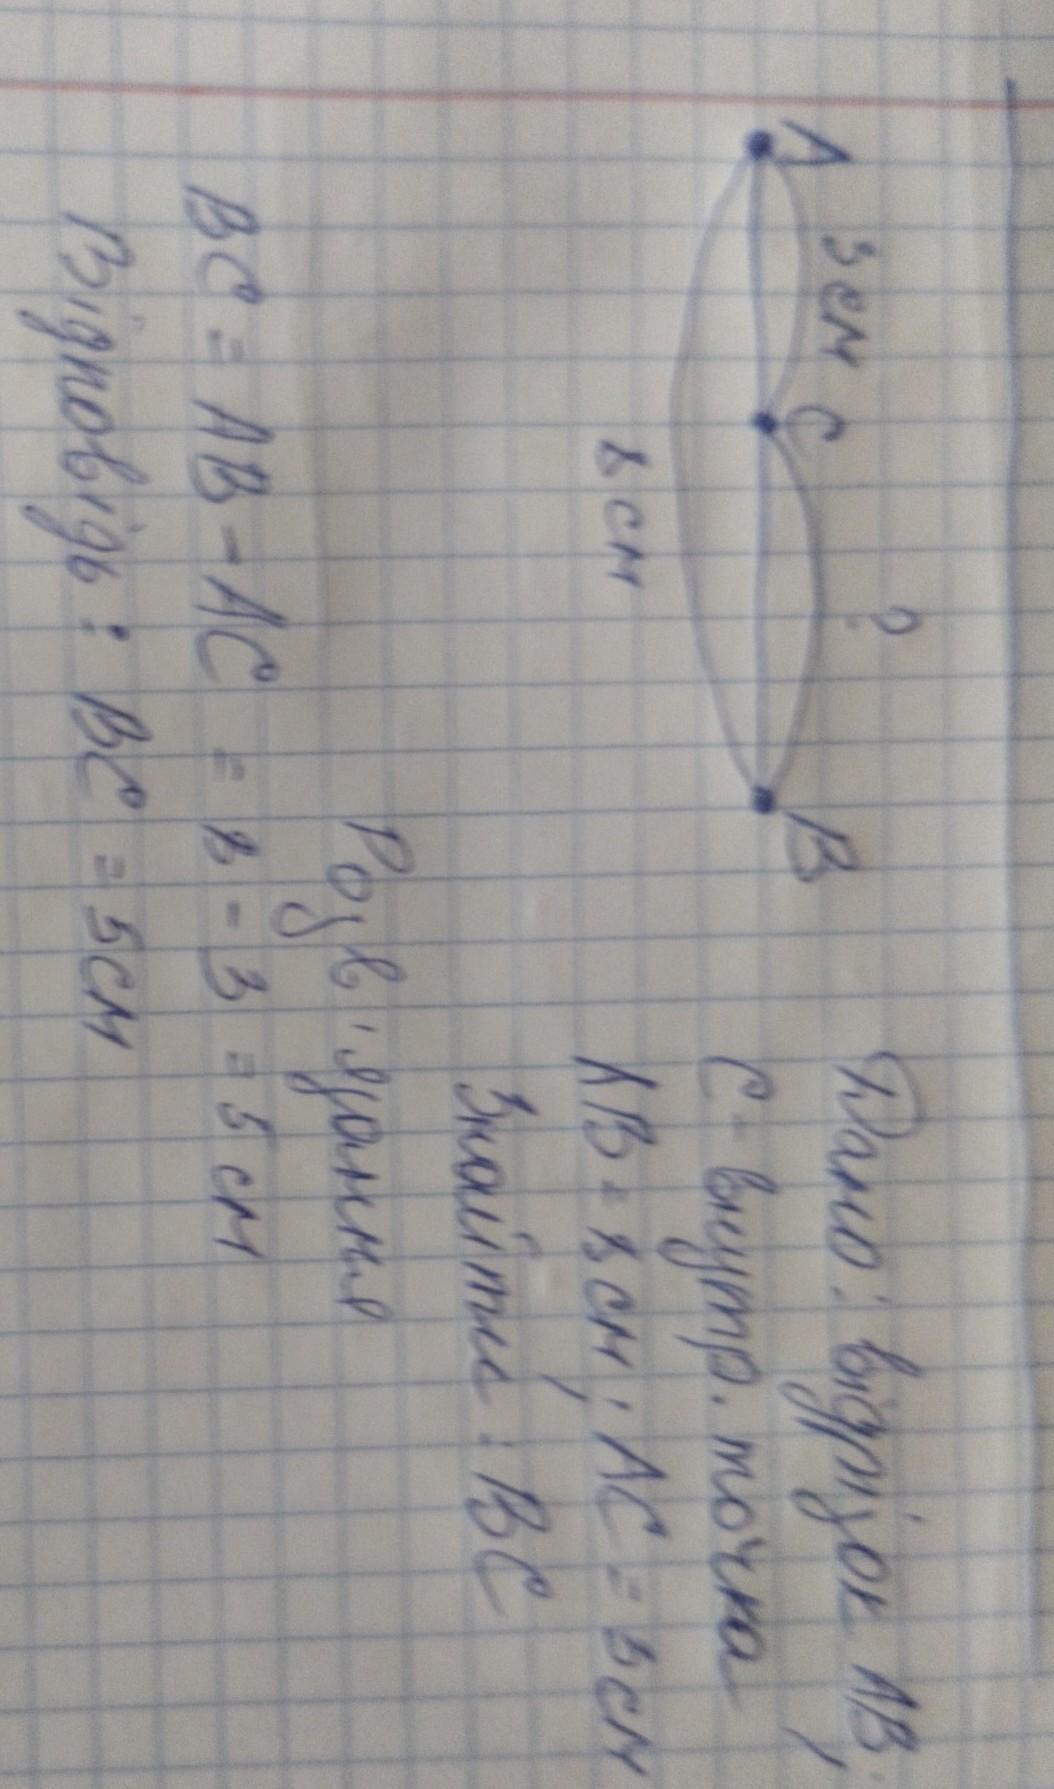 A 3 см C ? B
8 см
Дано: відрізок AB,
C - внутр. точка,
AB = 8 см; AC = 3 см
Знайти: BC
Розв'язання
BC = AB - AC = 8 - 3 = 5 см
Відповідь: BC = 5 см